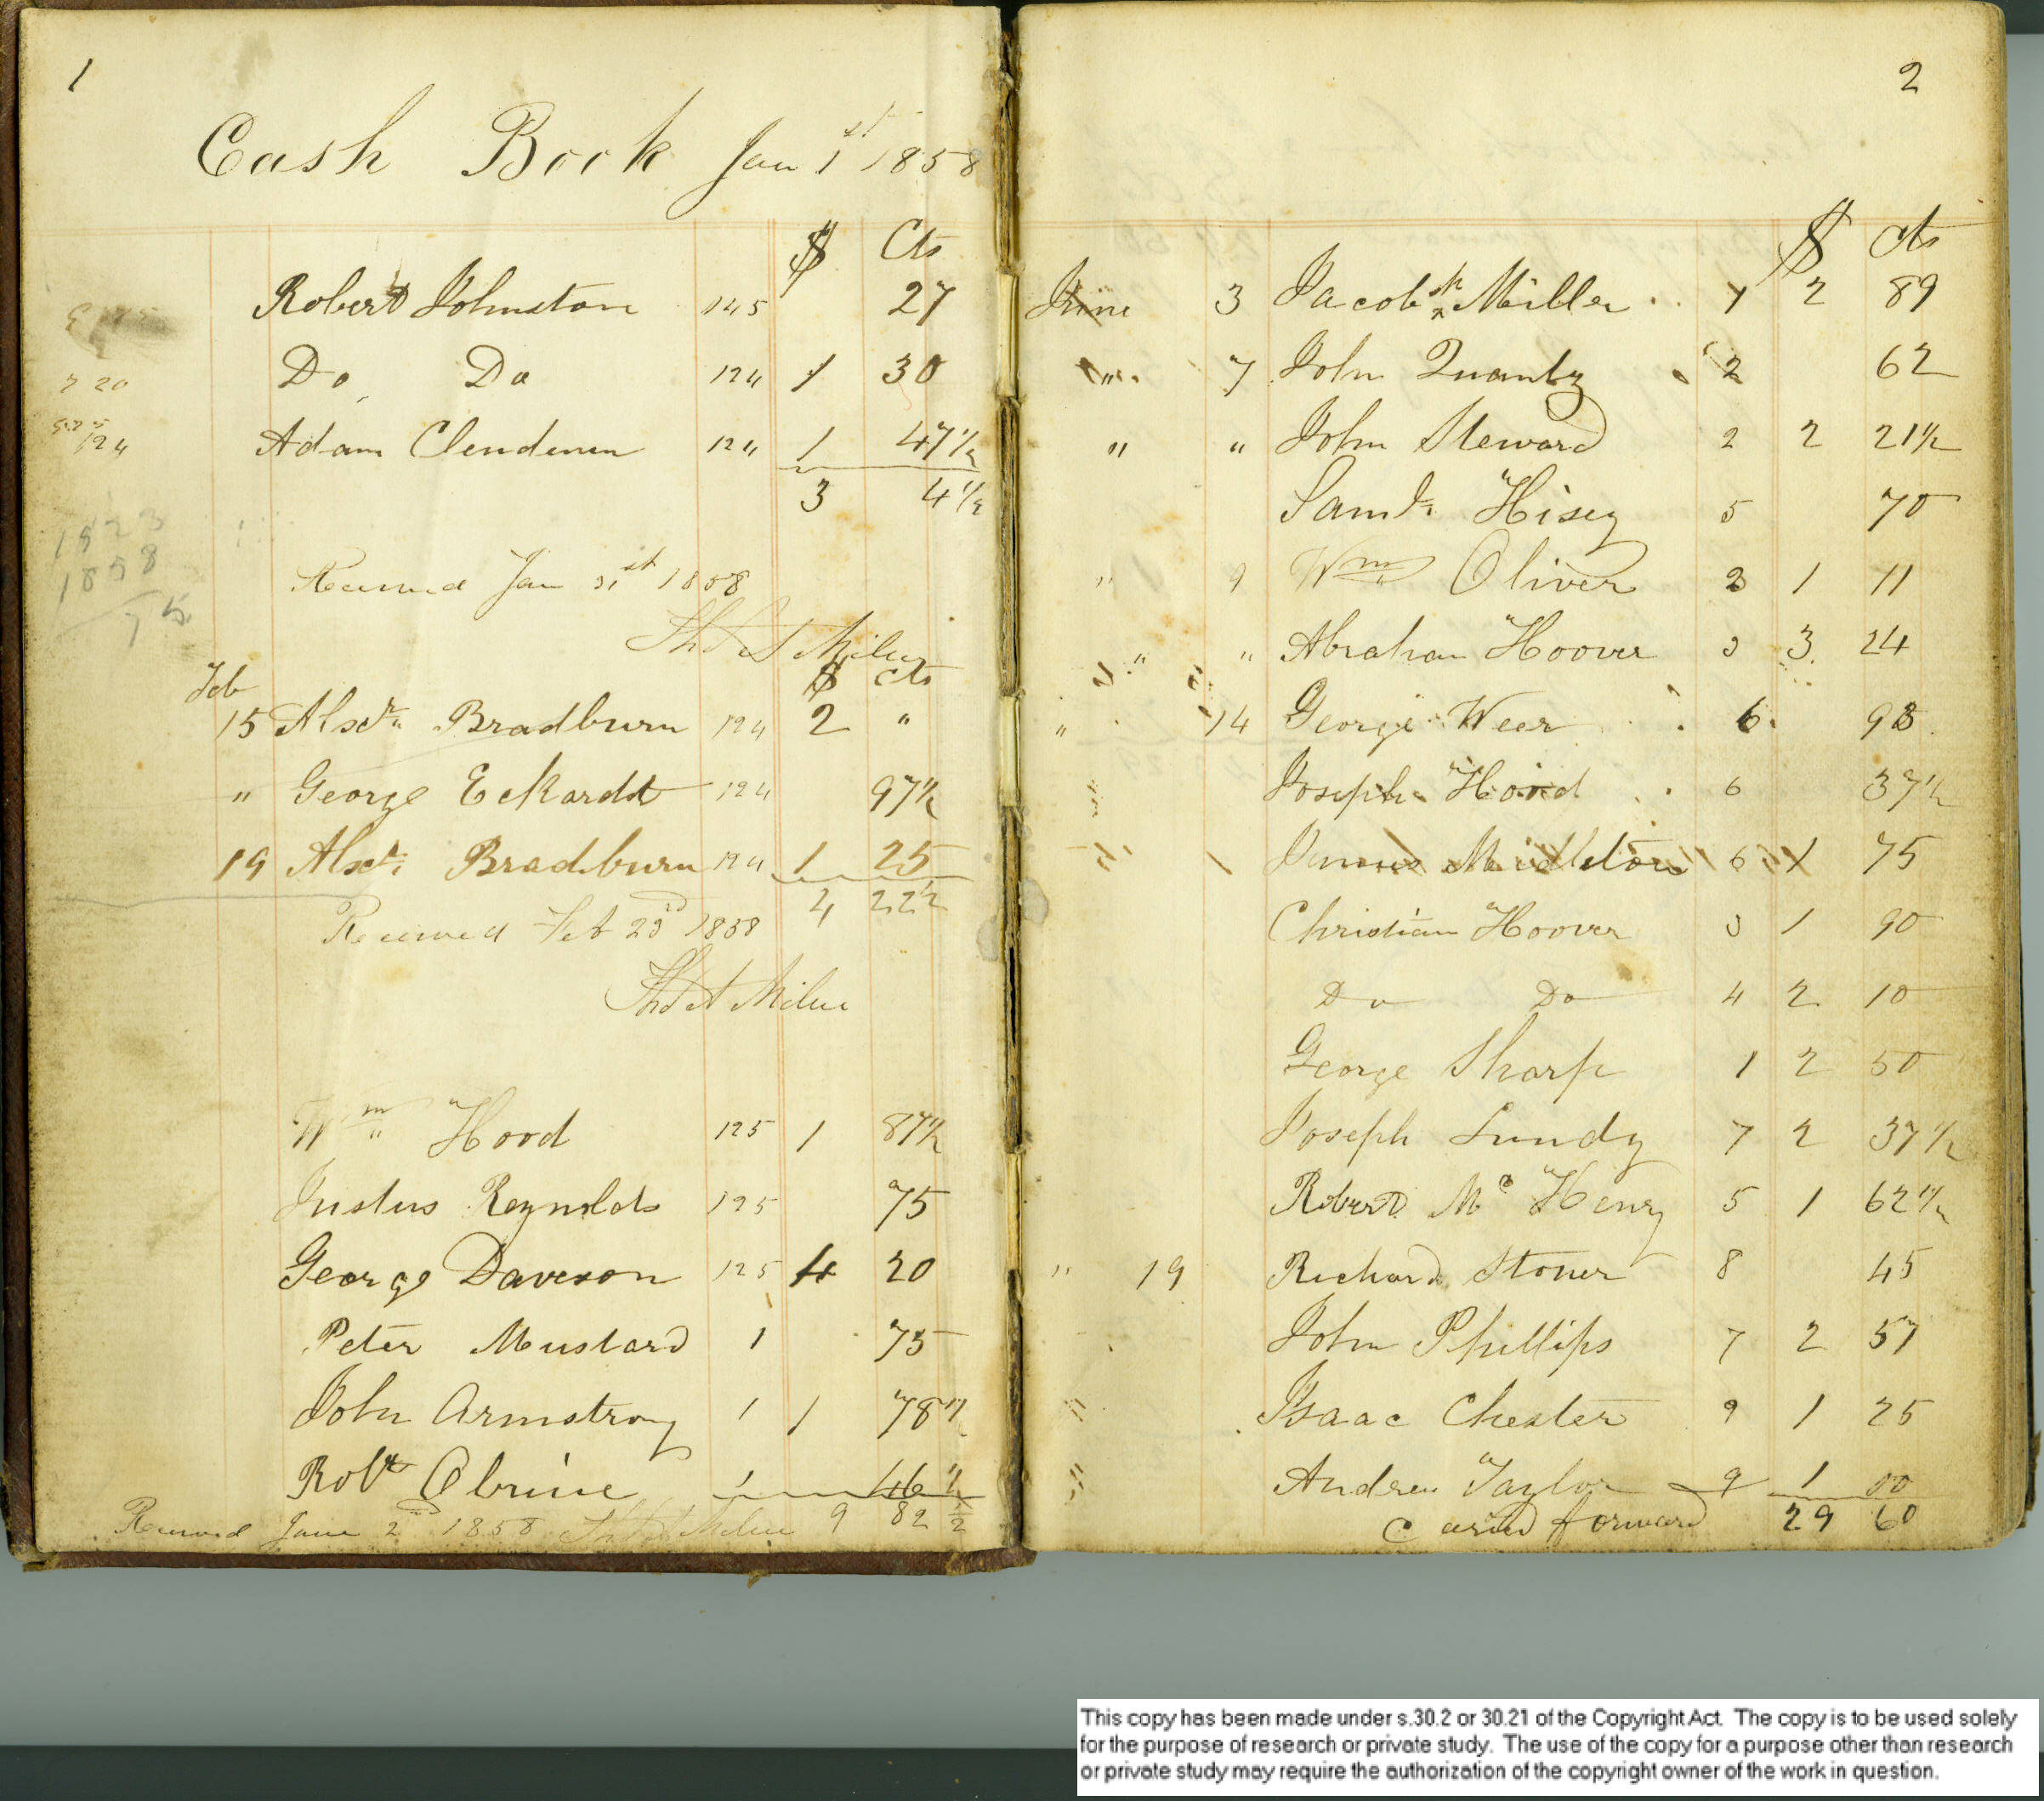 1
Cash Book Jan 1st 1858
$ Cts
Robert Johnston 145 27
Do Do 124 1 30
7 20
Adam Clendenen 124 1 47½
124
3 4½
1858
75
Received Jan 31st 1858
Thos A Milne
$ cts
Feb
15 Alexr Bradburn 124 2 "
" George Eckardt 124 97½
19 Alexr Bradburn 124 1 25
4 22½
Received Feb 23d 1858
Thos A Milne
Wm Hood 125 1 87½
Justus Reynolds 125 75
George Daveson 125 4 20
Peter Mustard 1 75
John Armstrong 1 1 78½
Robt Obrine 1 46½
Received June 2nd 1858 Thos A Milne 9 82½
2
$ cts
June 3 Jacob Sr Miller 1 2 89
" 7 John Quantz 2 62
" " John Steward 2 2 21½
Saml Hisey 5 70
" 9 Wm Oliver 2 1 11
" " Abraham Hoover 3 3 24
" 14 George Weer 6 98
Joseph Hood 6 37½
James Midleton 6 1 75
Christian Hoover 3 1 90
Do Do 4 2 10
George Sharp 1 2 50
Joseph Lundy 7 2 37½
Robert Mc Henry 5 1 62½
" 19 Richard Stoner 8 45
John Phillips 7 2 57
" Isaac Chester 9 1 25
" Andrew Taylor 9 1 00
Caried forward 29 60
This copy has been made under s.30.2 or 30.21 of the Copyright Act. The copy is to be used solely
for the purpose of research or private study. The use of the copy for a purpose other than research
or private study may require the authorization of the copyright owner of the work in question.